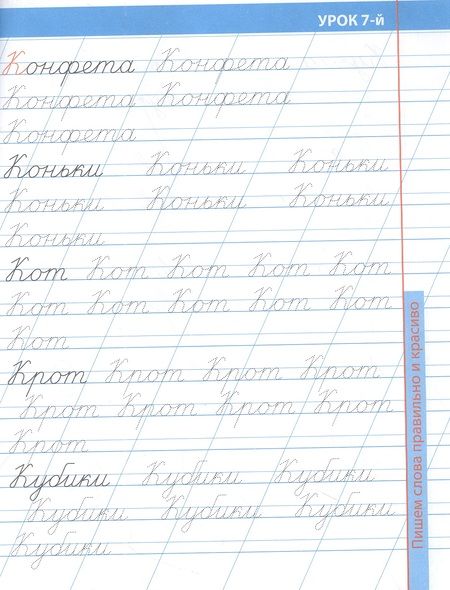 УРОК 7-й
Конфета Конфета
Конфета Конфета
Конфета
Коньки Коньки Коньки
Коньки Коньки Коньки
Коньки
Кот Кот Кот Кот Кот
Кот Кот Кот Кот Кот
Кот
Крот Крот Крот Крот
Крот Крот Крот Крот
Крот
Кубики Кубики Кубики
Кубики Кубики Кубики
Кубики
Пишем слова правильно и красиво